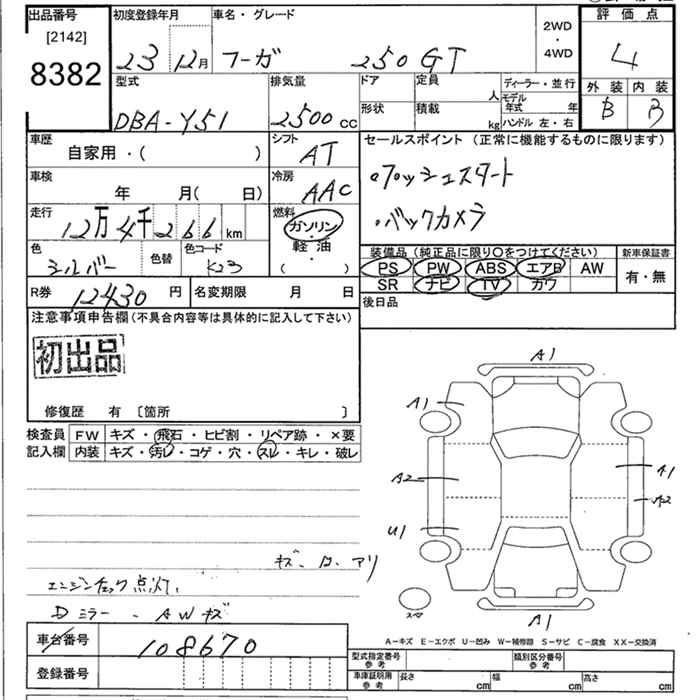 出品番号
[2142]
8382
初度登録年月
23 12月
車名・グレード
フーガ 250GT
2WD
・
4WD
評価点
4
外装 内装
B B
型式
DBA-Y51
排気量
2500 CC
ドア 定員 人
形状 積載 kg
ディーラー・並行
モデル年式 年
ハンドル 左・右
車歴
自家用・( )
シフト
AT
セールスポイント (正常に機能するものに限ります)
・プッシュスタート
・バックカメラ
車検
年 月( 日)
冷房
AAC
走行
12万4千266km
燃料
ガソリン・
軽油・
( )
色
シルバー
色替
色コード
K23
装備品(純正品に限り〇をつけてください)
PS PW ABS エアB AW
SR ナビ TV カワ
新車保証書
有・無
R券 12430 円
名変期限 月 日
後日品
注意事項申告欄(不具合内容等は具体的に記入して下さい)
初出品
修復歴 有 〔箇所 〕
検査員記入欄
FW キズ・飛石・ヒビ割・リペア跡・×要
内装 キズ・汚レ・コゲ・穴・スレ・キレ・破レ
キズ、ロ、アリ
エンジンチェック点灯、
Dミラー、AWキズ
A1
A1
A2
A1
A2
U1
スペア
A1
A-キズ E-エクボ U-凹み W-補修跡 S-サビ C-腐食 XX-交換済
車台番号 108670
登録番号
型式指定番号 参考
類別区分番号 参考
車庫証明用 参考
長さ cm 幅 cm 高さ cm